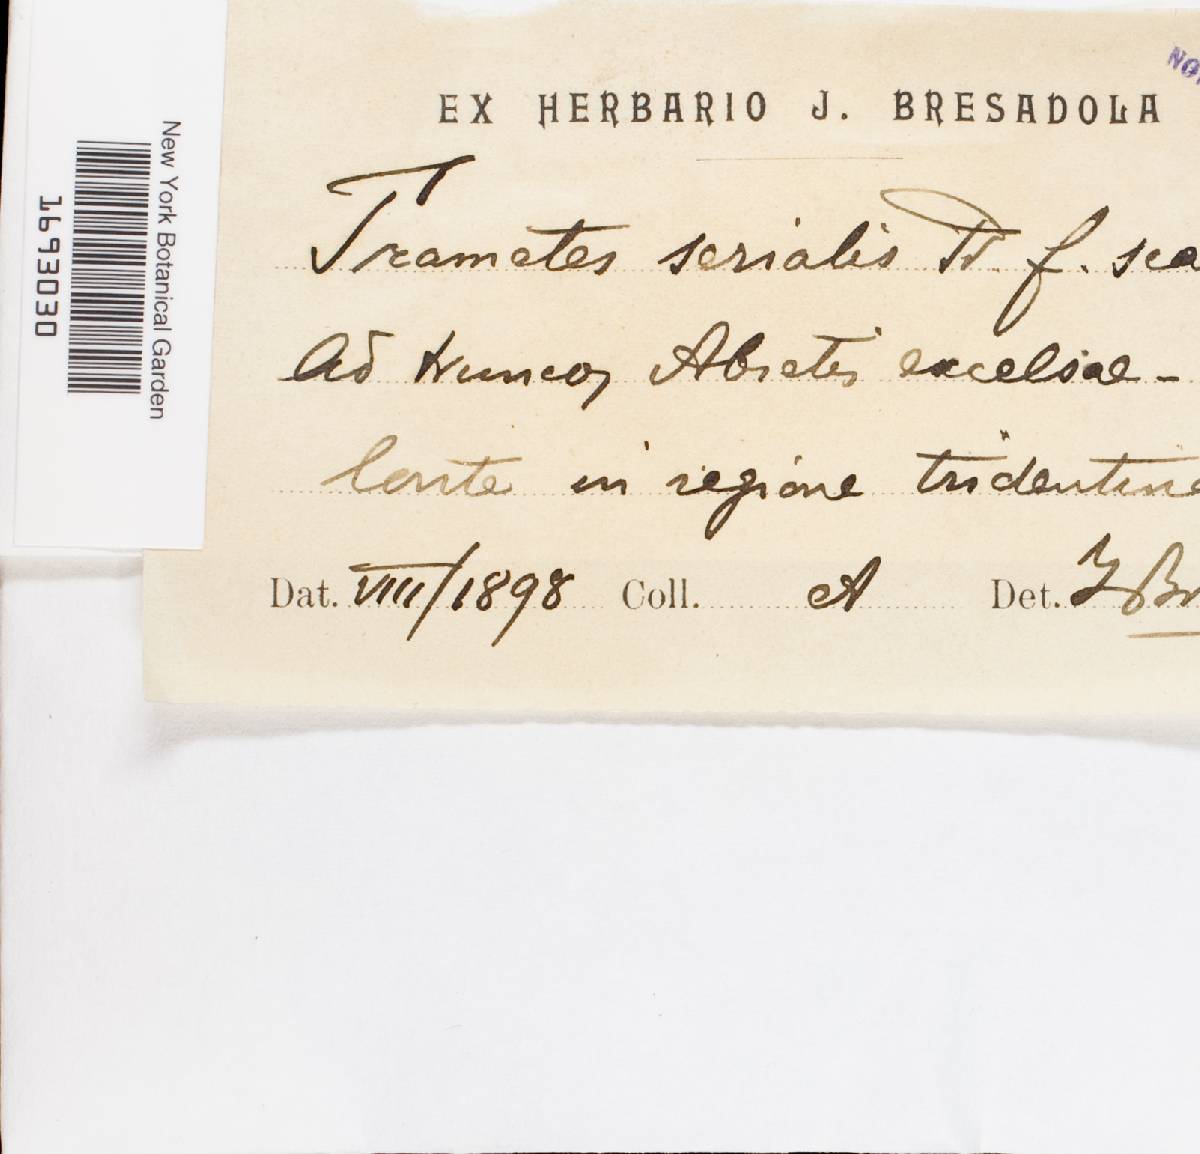 New York Botanical Garden
1693030
EX HERBARIO J. BRESADOLA
Trametes serialis Fr. f. sca
Ad truncos Abietis excelsae -
in regione tridentina
Dat. VIII/1898 Coll. A Det. J Br